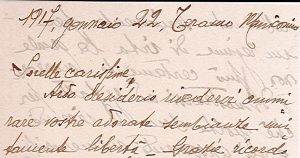 1917, gennaio 22, Teramo
Sorelle carissime,
Ardo desiderio rivedervi ammi
rare vostre adorate sembianze
libertà – Grazie ricordo